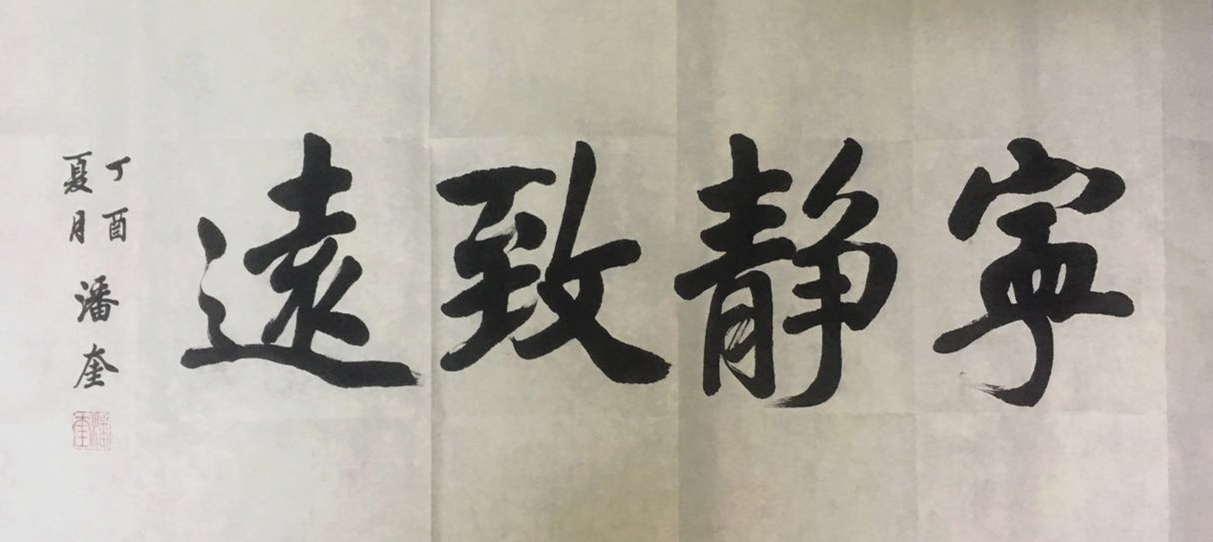 寧靜致遠
丁酉
夏月
潘奎
潘奎